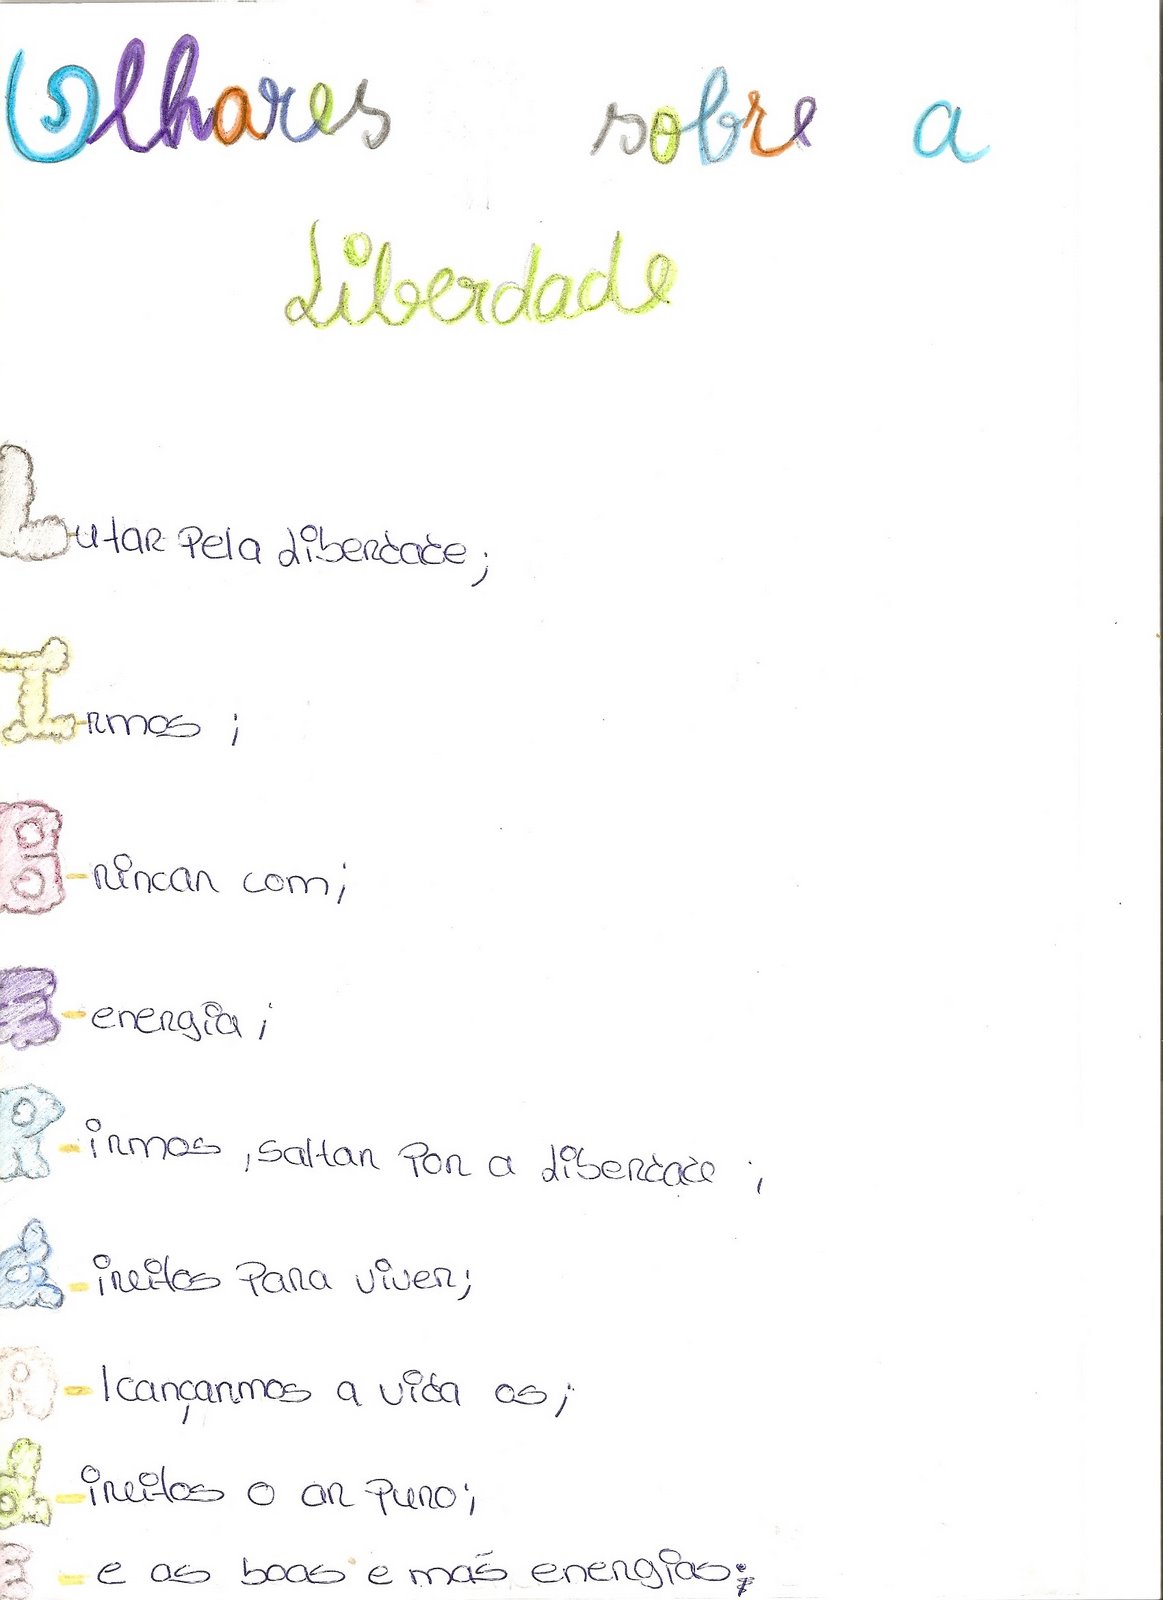 Olhares sobre a
Liberdade
Lutar pela Liberdade;
Irmos ;
B-rincar com;
E-energia;
R-irmos , saltar por a Liberdade ;
d-ireitos para viver;
A-lcançarmos a vida os;
d-ireitos o ar puro;
E-e as boas e más energias;